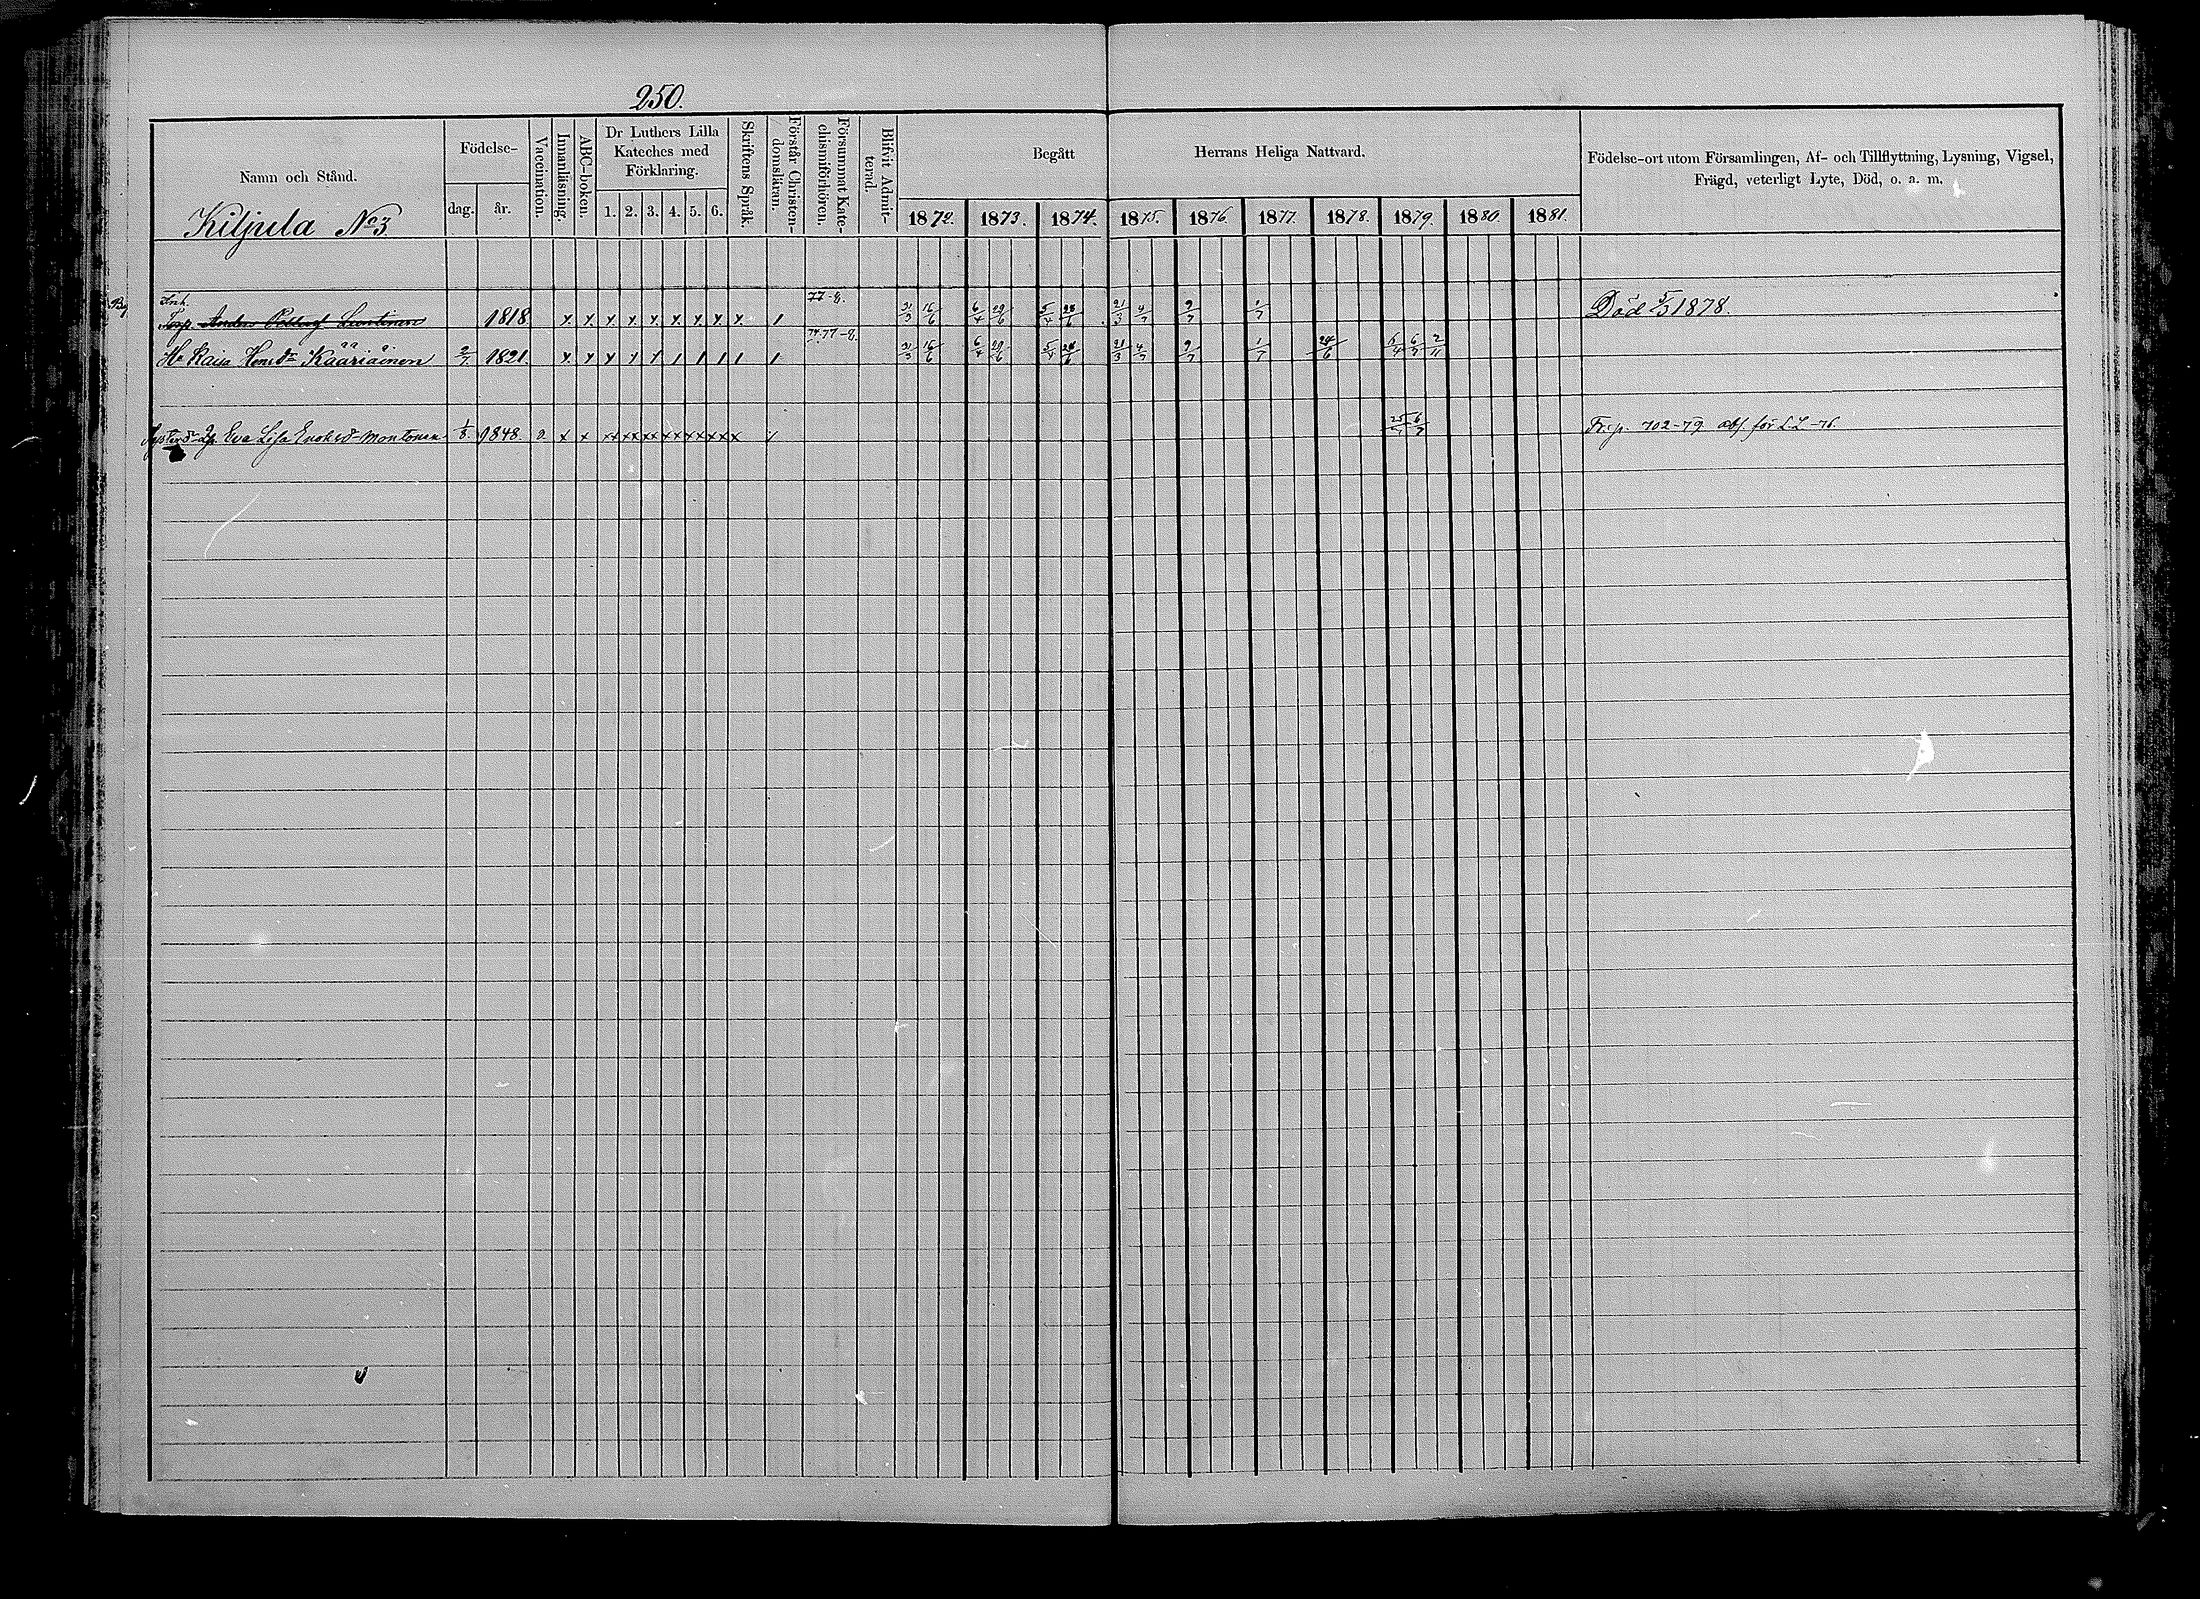 250.
Namn och Stånd.
Födelse-
dag. år.
Vaccination.
Innanläsning.
ABC-boken.
Dr Luthers Lilla
Kateches med
Förklaring.
1. 2. 3. 4. 5. 6.
Skriftens Språk.
Förstår Christen-
domsläran.
Försummat Kate-
chismiförhören.
Blifvit Admit-
terad.
Begått Herrans Heliga Nattvard.
1872. 1873. 1874. 1875. 1876. 1877. 1878. 1879. 1880. 1881.
Födelse-ort utom Församlingen, Af- och Tillflyttning, Lysning, Vigsel,
Frägd, veterligt Lyte, Död, o. a. m.
Kiljula No 3
Enk. 77-8.
Torp. Anders 1818. x x x x x x x x x 1 31/3 16/6 6/4 29/6 5/4 28/6 21/3 4/7 9/7 1/7 Död 5/3 1878.
77-8.
Hu Kaisa Kääriäinen 2/7 1821. x x x x x 1 1 1 1 1 31/3 16/6 6/4 29/6 5/4 28/6 21/3 4/7 9/7 1/7 24/6 6/4 6/7 2/11
Eva Lisa Enoksd. Montonen 1/8 1848. v. x x xx xx xx xx xx xx x 6/7 Fr. p. 702-79 för -76.